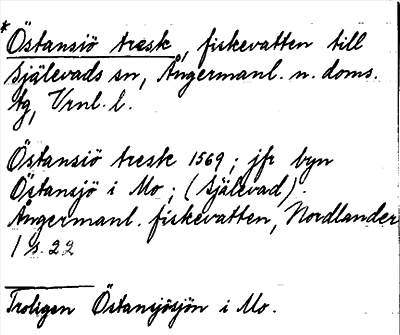 *Östansiö tresk, fiskevatten till
Själevads sn, Ångermanl. n. doms.
tg, Vrnl. l.
Östansiö tresk 1569; jfr byn
Östansjö i Mo; (Själevad).
Ångermanl. fiskevatten, Nordlander
/ s. 22
Troligen Östansjösjön i Mo.